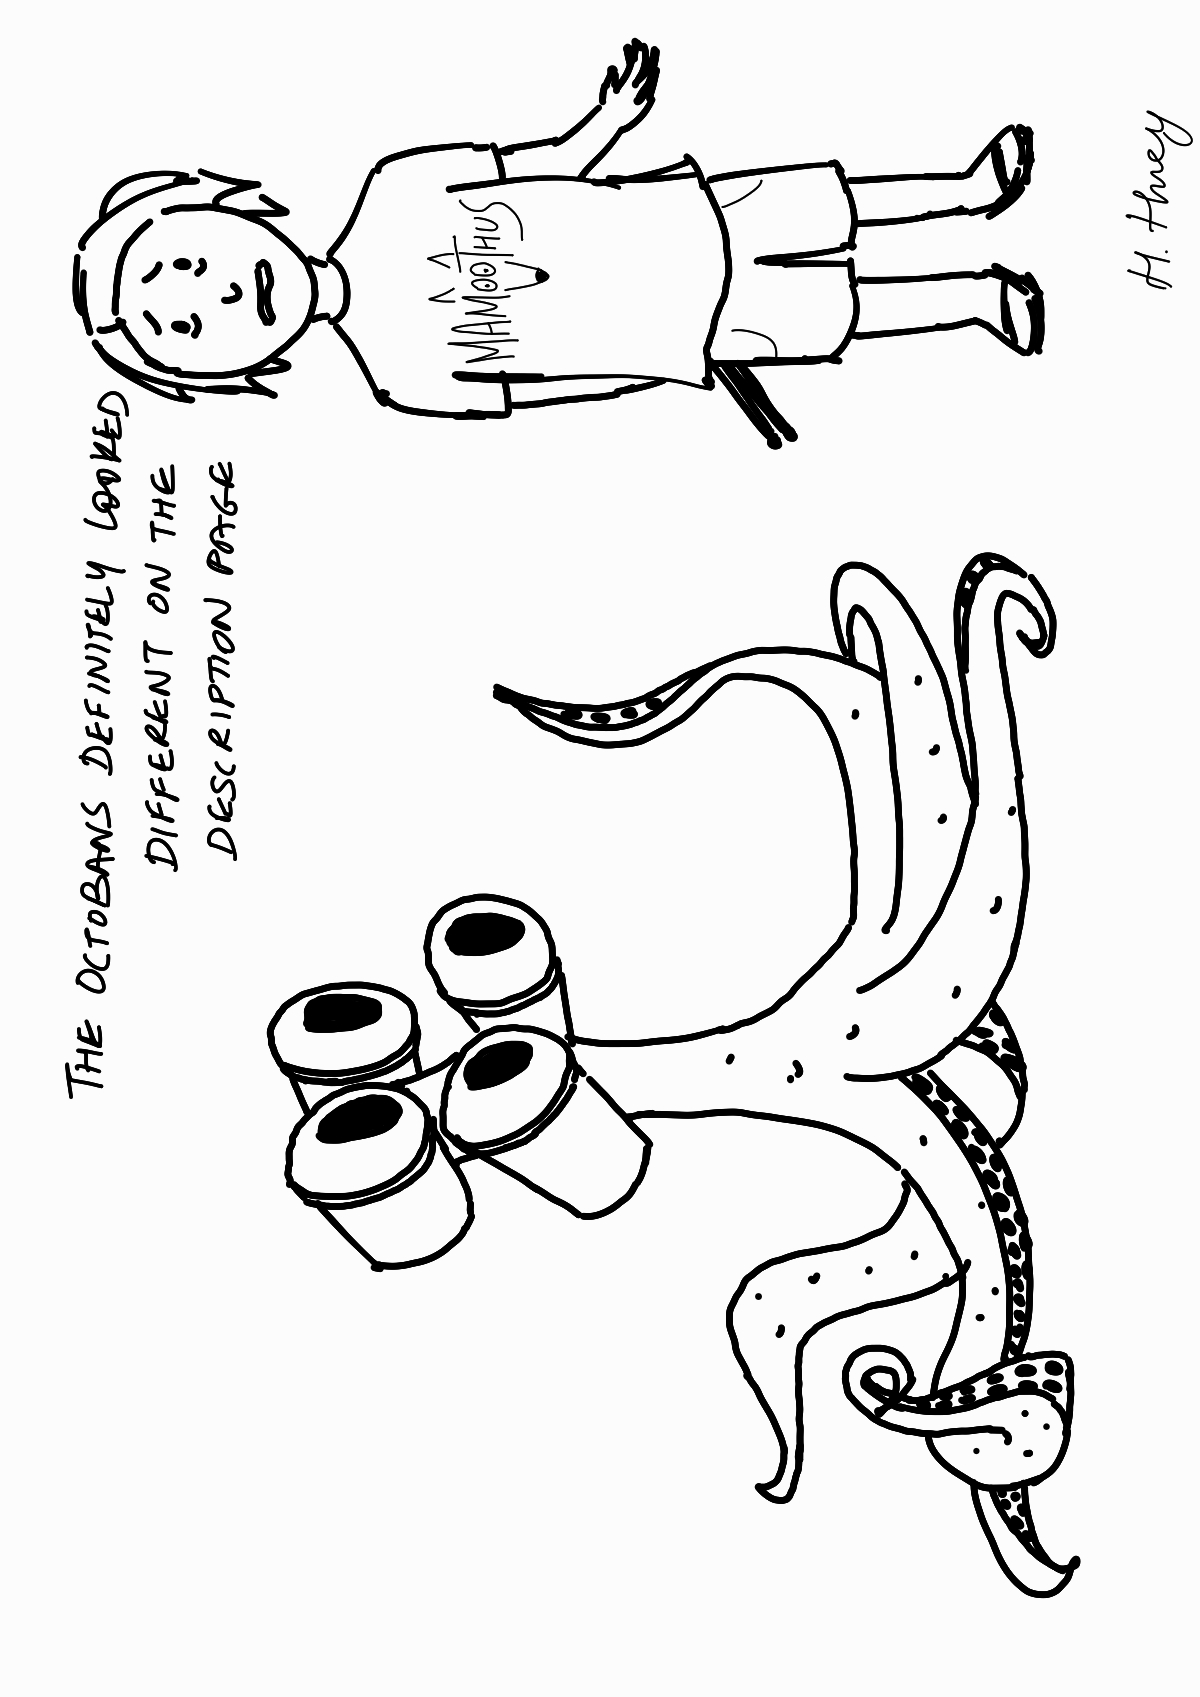 THE OCTOBANS DEFINITELY LOOKED
DIFFERENT ON THE
DESCRIPTION PAGE
MAMOOTHUS
H.